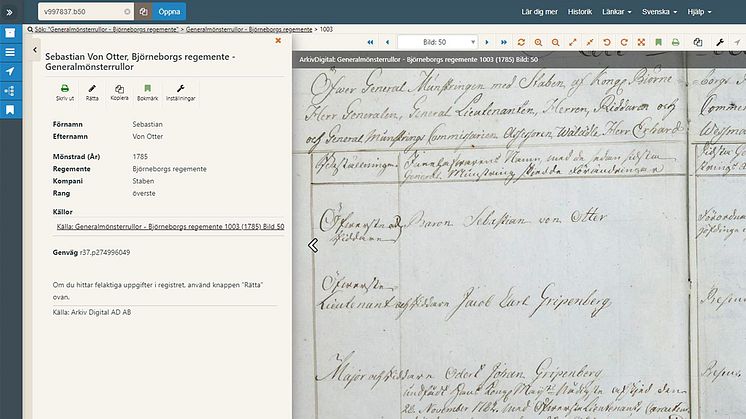 v997837.b50
Öppna
Lär dig mer Historik Länkar Svenska Hjälp
Sök: "Generalmönsterrullor - Björneborgs regemente" > Generalmönsterrullor - Björneborgs regemente > 1003
Bild: 50
ArkivDigital: Generalmönsterrullor - Björneborgs regemente 1003 (1785) Bild: 50
Sebastian Von Otter, Björneborgs regemente -
Generalmönsterrullor
Skriv ut Rätta Kopiera Bokmärk Inställningar
Förnamn Sebastian
Efternamn Von Otter
Mönstrad (År) 1785
Regemente Björneborgs regemente
Kompani Staben
Rang överste
Källor
Källa: Generalmönsterrullor - Björneborgs regemente 1003 (1785) Bild 50
Genväg r37.p274996049
Om du hittar felaktiga uppgifter i registret, använd knappen "Rätta"
ovan.
Källa: Arkiv Digital AD AB
Öfver General Munstringen med Staben af Kongl Biörne-
Herr Generalen, General Lieutenanten, Herren, Riddaren och
och General Munstrings Commissarien Herr Erhard
Innehafvarens Namn, med de sedan sidsta
General Munstring skedde förändringar
Öfversten och Baron Sebastian von Otter
Riddaren
Öfverste
Lieutenant och Riddare Jacob Carl Gripenberg
Major och Riddare Odert Johan Gripenberg
undfådt Kongl May:ts afsked den
22 November 1782 med Öfverste Lieutenants